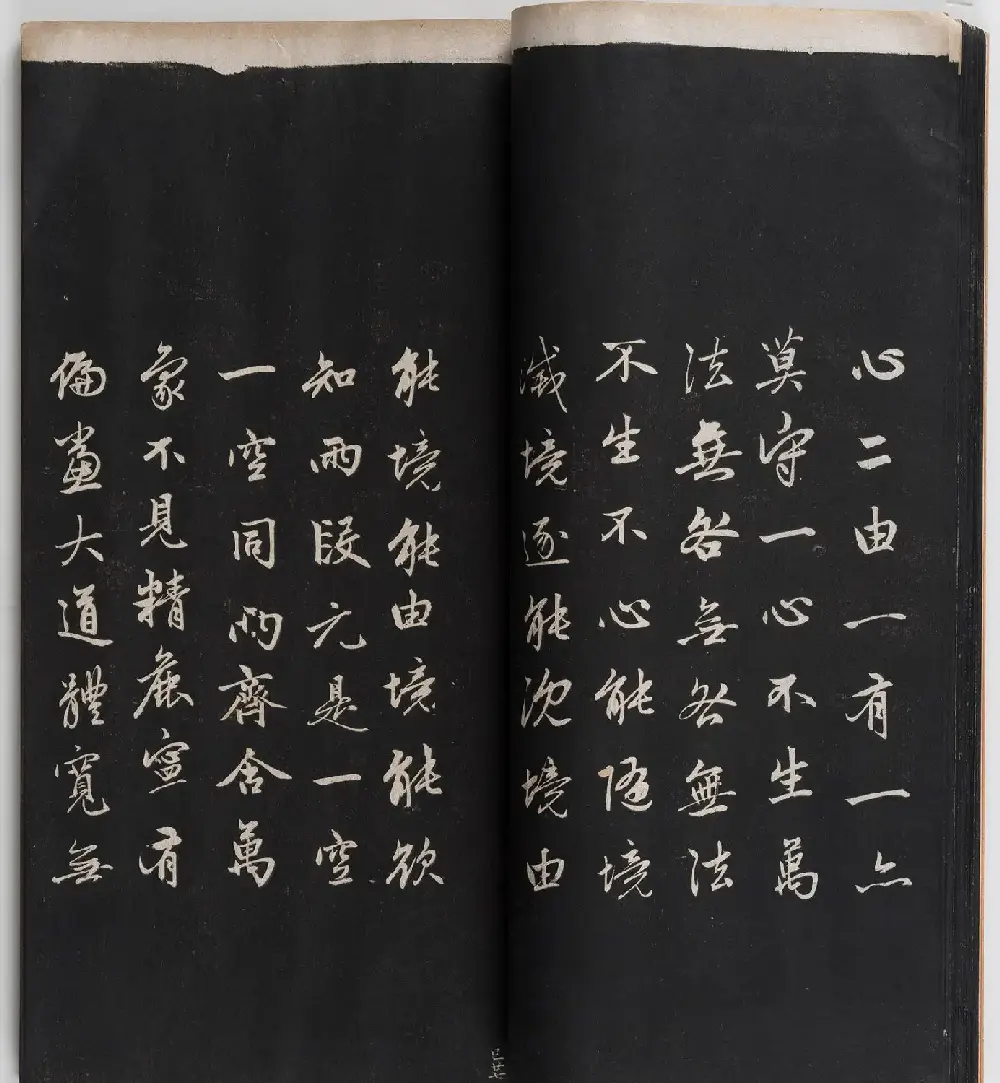 心二由一有一亦
莫守一心不生萬
法無咎無咎無法
不生不心能隨境
滅境逐能沈境由
能境能由境能欲
知兩段元是一空
一空同兩齊含萬
象不見精麤寧有
偏黨大道體寬無